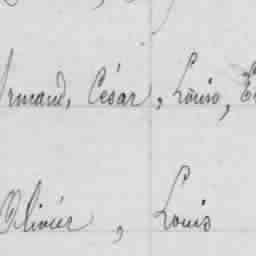 Armand, César, Louis, E
Olivier, Louis